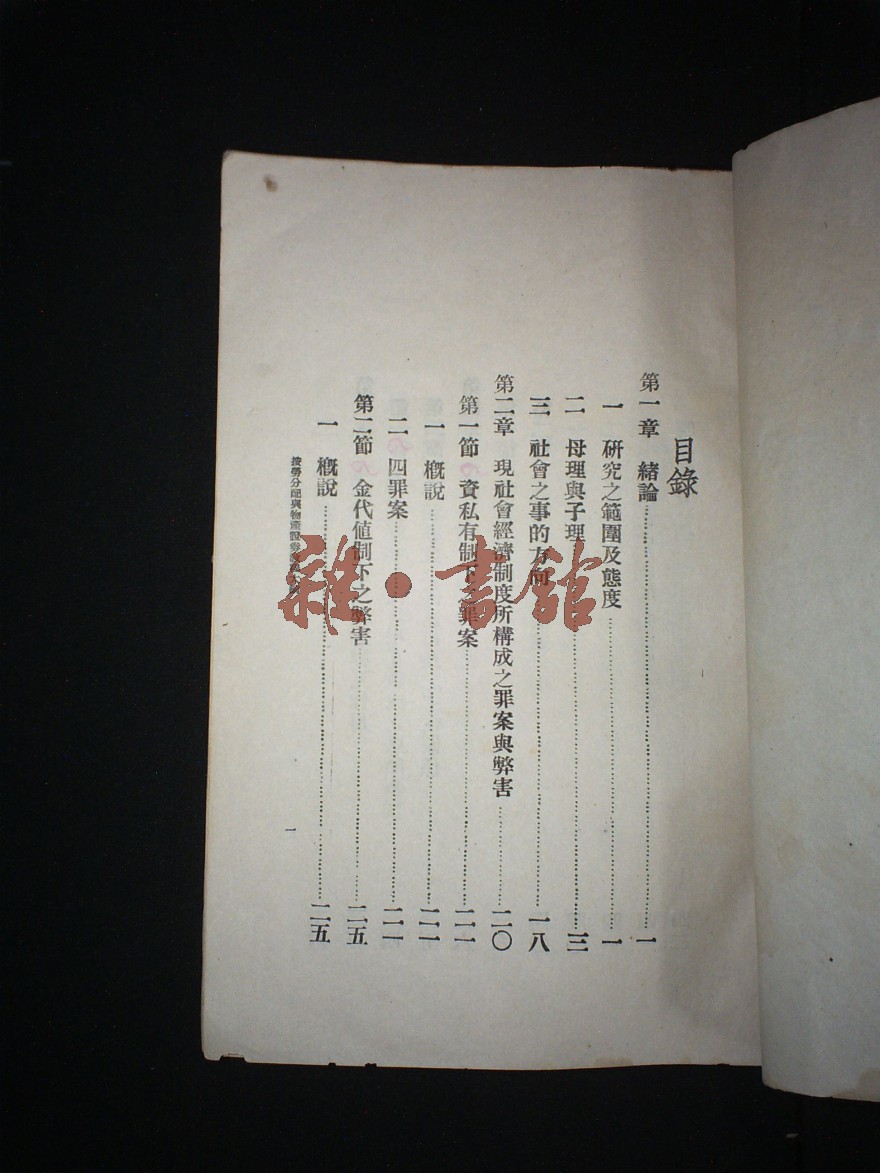 目錄
第一章 緒論……一
一 研究之範圍及態度……一
二 母理與子理……三
三 社會之事的方向……一八
第二章 現社會經濟制度所構成之罪案與弊害……二〇
第一節 資私有制下之罪案……二一
一 概說……二一
二 四罪案……二一
第二節 金代値制下之弊害……二五
一 概說……二五
按勞分配與物產證券
一
雜·書館